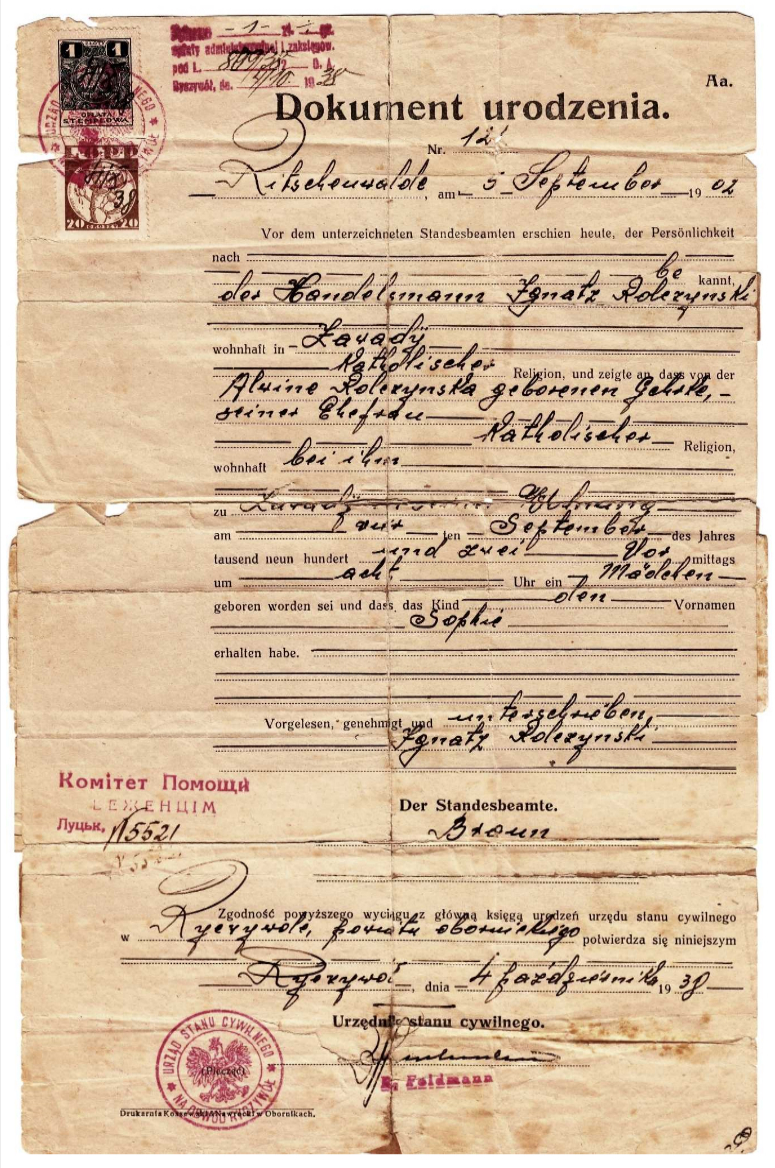 1 1
OPŁATA
STEMPLOWA
20 GROSZY 20
opłaty administracyjnej i zaksięgow.
pod L.
Ryszywół, dn. 4/10 1938
Aa.
Dokument urodzenia.
Nr. 121
Ritschenwalde, am 5 September 1902
Vor dem unterzeichneten Standesbeamten erschien heute, der Persönlichkeit
nach
be kannt,
der Handelsmann Ignatz Rolczynski
wohnhaft in Zawady
Katholischer Religion, und zeigte an, dass von der
Alwine Rolczynska geborenen Gehrke,
seiner Ehefrau
Katholischer Religion,
wohnhaft bei ihm
zu Zawady in seiner Wohnung
am vier ten September des Jahres
tausend neun hundert und zwei Vor mittags
um acht Uhr ein Mädchen
geboren worden sei und dass das Kind den Vornamen
Sophie
erhalten habe.
Vorgelesen, genehmigt und unterschrieben
Ignatz Rolczynski
Комітет Помощи
БЕЖЕНЦІМ
Луцьк, 15521
Der Standesbeamte.
Braun
Zgodność powyższego wyciągu z główną księgą urodzeń urzędu stanu cywilnego
w Ryczywole, powiatu obornickiego potwierdza się niniejszym
Ryczywół, dnia 4 października 1938
Urzędnik stanu cywilnego.
URZĄD STANU CYWILNEGO
NA OBWÓD RYCZYWÓŁ
(Pieczęć)
Feldmann
Drukarnia Koszewski i Nawrocki w Obornikach.